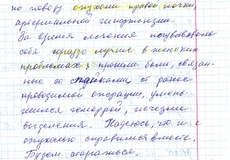 по поводу опухоли правой почки
артериальной гипертензии.
За время лечения почувствовала
себя гораздо лучше в женских
проблемах; прошли боли, связан-
ные со спайками от ранее
проводимой операции, умень-
шился геморрой, исчезли
выделения. Надеюсь, что и с
опухолью справимся вместе.
Будем стараться.